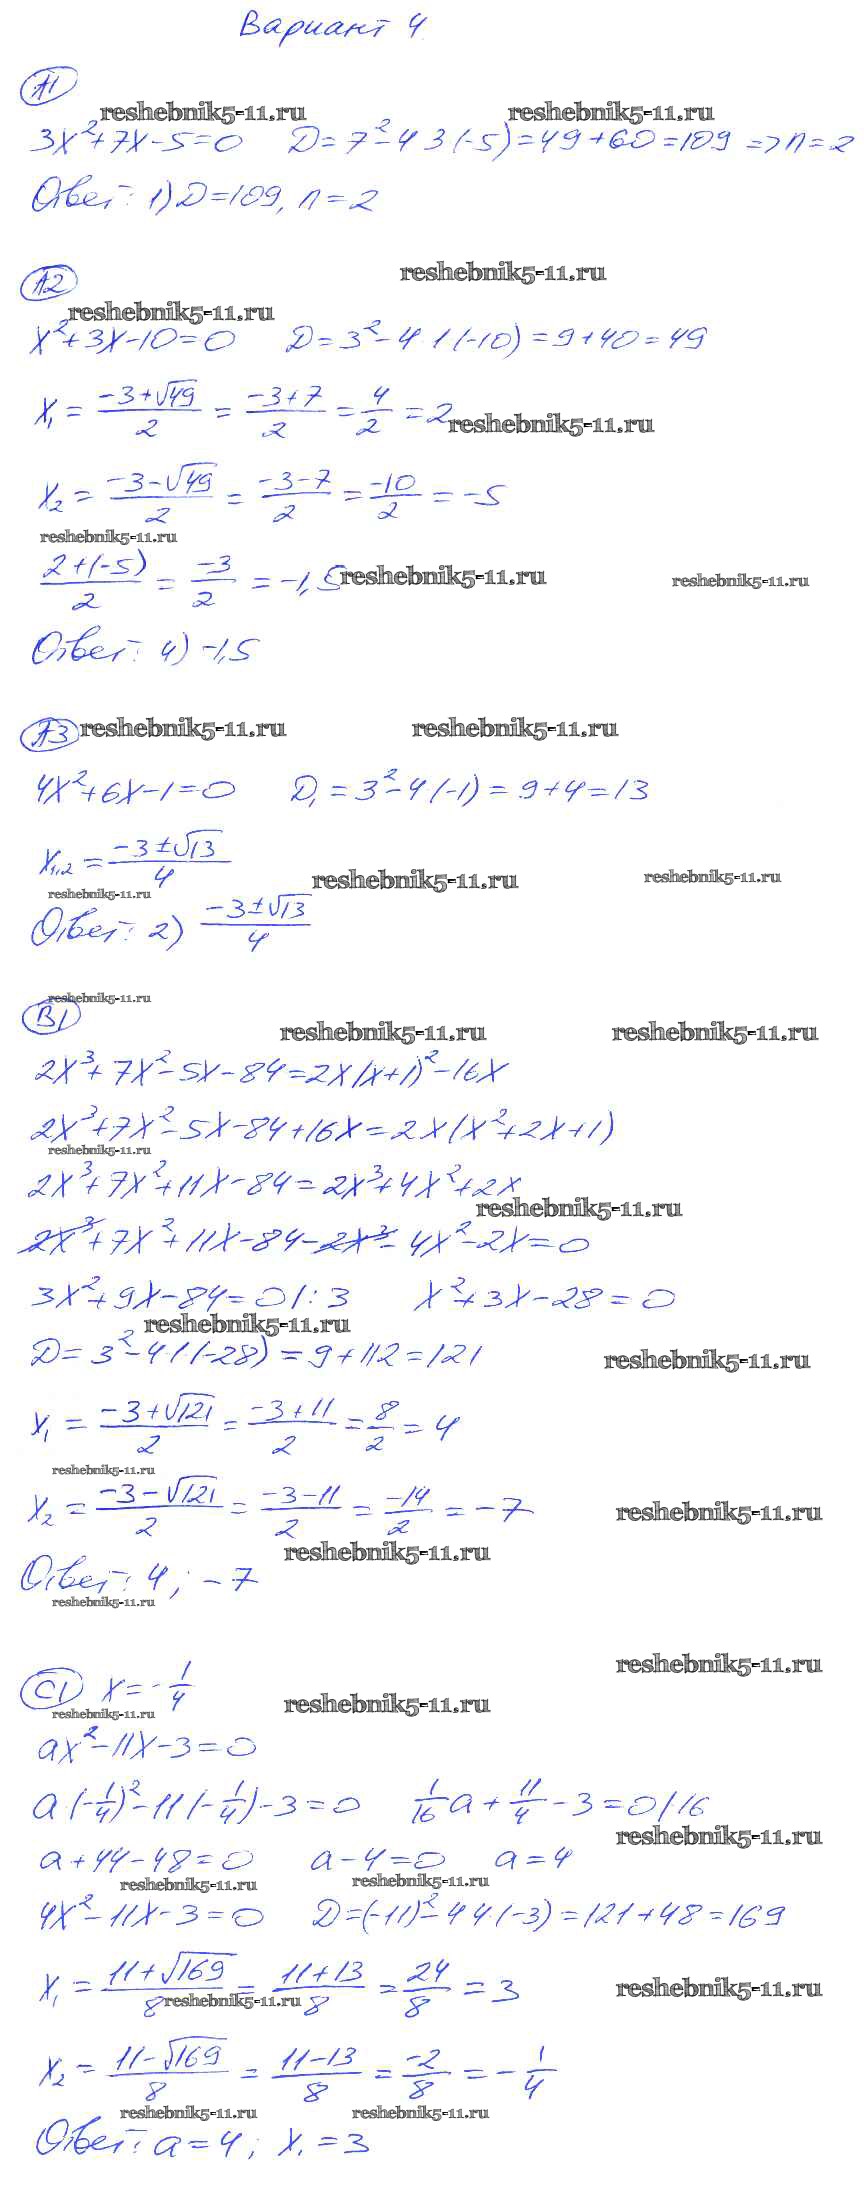 Вариант 4
А1
reshebnik5-11.ru reshebnik5-11.ru
3x²+7x-5=0 D=7²-4·3·(-5)=49+60=109 => n=2
Ответ: 1) D=109, n=2
reshebnik5-11.ru
А2
reshebnik5-11.ru
x²+3x-10=0 D=3²-4·1·(-10)=9+40=49
x₁ = (-3+√49)/2 = (-3+7)/2 = 4/2 = 2
reshebnik5-11.ru
x₂ = (-3-√49)/2 = (-3-7)/2 = -10/2 = -5
reshebnik5-11.ru
(2+(-5))/2 = -3/2 = -1,5
reshebnik5-11.ru reshebnik5-11.ru
Ответ: 4) -1,5
А3
reshebnik5-11.ru reshebnik5-11.ru
4x²+6x-1=0 D₁=3²-4·(-1)=9+4=13
x₁,₂ = (-3±√13)/4
reshebnik5-11.ru reshebnik5-11.ru
reshebnik5-11.ru
Ответ: 2) (-3±√13)/4
reshebnik5-11.ru
В1
reshebnik5-11.ru reshebnik5-11.ru
2x³+7x²-5x-84=2x(x+1)²-16x
2x³+7x²-5x-84+16x=2x(x²+2x+1)
reshebnik5-11.ru
2x³+7x²+11x-84=2x³+4x²+2x
reshebnik5-11.ru
2x³+7x²+11x-84-2x³-4x²-2x=0
3x²+9x-84=0 |:3 x²+3x-28=0
reshebnik5-11.ru
D=3²-4·1·(-28)=9+112=121
reshebnik5-11.ru
x₁ = (-3+√121)/2 = (-3+11)/2 = 8/2 = 4
reshebnik5-11.ru
x₂ = (-3-√121)/2 = (-3-11)/2 = -14/2 = -7
reshebnik5-11.ru
reshebnik5-11.ru
Ответ: 4; -7
reshebnik5-11.ru
reshebnik5-11.ru
С1 x=-1/4
reshebnik5-11.ru reshebnik5-11.ru
ax²-11x-3=0
a·(-1/4)²-11·(-1/4)-3=0 1/16a+11/4-3=0 |·16
reshebnik5-11.ru
a+44-48=0 a-4=0 a=4
reshebnik5-11.ru reshebnik5-11.ru
4x²-11x-3=0 D=(-11)²-4·4·(-3)=121+48=169
x₁ = (11+√169)/8 = (11+13)/8 = 24/8 = 3
reshebnik5-11.ru reshebnik5-11.ru
x₂ = (11-√169)/8 = (11-13)/8 = -2/8 = -1/4
reshebnik5-11.ru reshebnik5-11.ru
Ответ: a=4; x₁=3